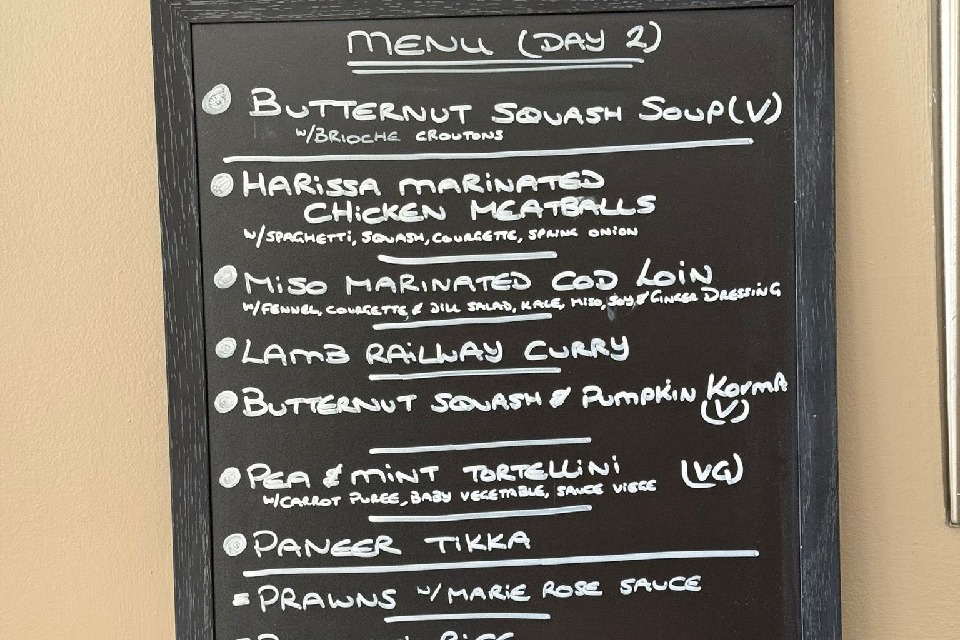 MENU (DAY 2)
BUTTERNUT SQUASH SOUP (V)
W/BRIOCHE CROUTONS
HARISSA MARINATED
CHICKEN MEATBALLS
W/SPAGHETTI, SQUASH, COURGETTE, SPRING ONION
MISO MARINATED COD LOIN
W/FENNEL, COURGETTE & DILL SALAD, KALE, MISO, SOY & GINGER DRESSING
LAMB RAILWAY CURRY
BUTTERNUT SQUASH & PUMPKIN KORMA
(V)
PEA & MINT TORTELLINI (VG)
W/CARROT PUREE, BABY VEGETABLE, SAUCE VIEGE
PANEER TIKKA
PRAWNS W/MARIE ROSE SAUCE